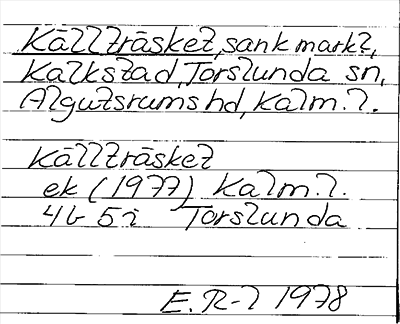 Källträsket, sank mark,
Kalkstad, Torslunda sn,
Algutsrums hd, Kalm. l.
Källträsket
ek (1977) Kalm. l.
4b 5i Torslunda
E. R-l 1978